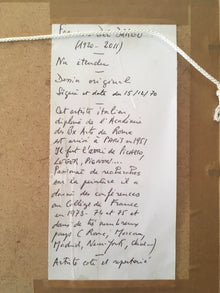 (1920-2011)
Nu étendu
Dessin original
Signé et daté du 15/12/70
Cet artiste italien
diplômé de l'Académie
des Bx Arts de Rome
est arrivé à PARIS en 1951
Il fut l'ami de PICASSO,
LEGER, PIGNON...
Passionné de recherches
sur la peinture il a
donné des conférences
au College de France
en 1973- 74 et 75 et
dans de très nombreux
pays (Rome, Moscou,
Madrid, New-York,
Artiste coté et repertorié